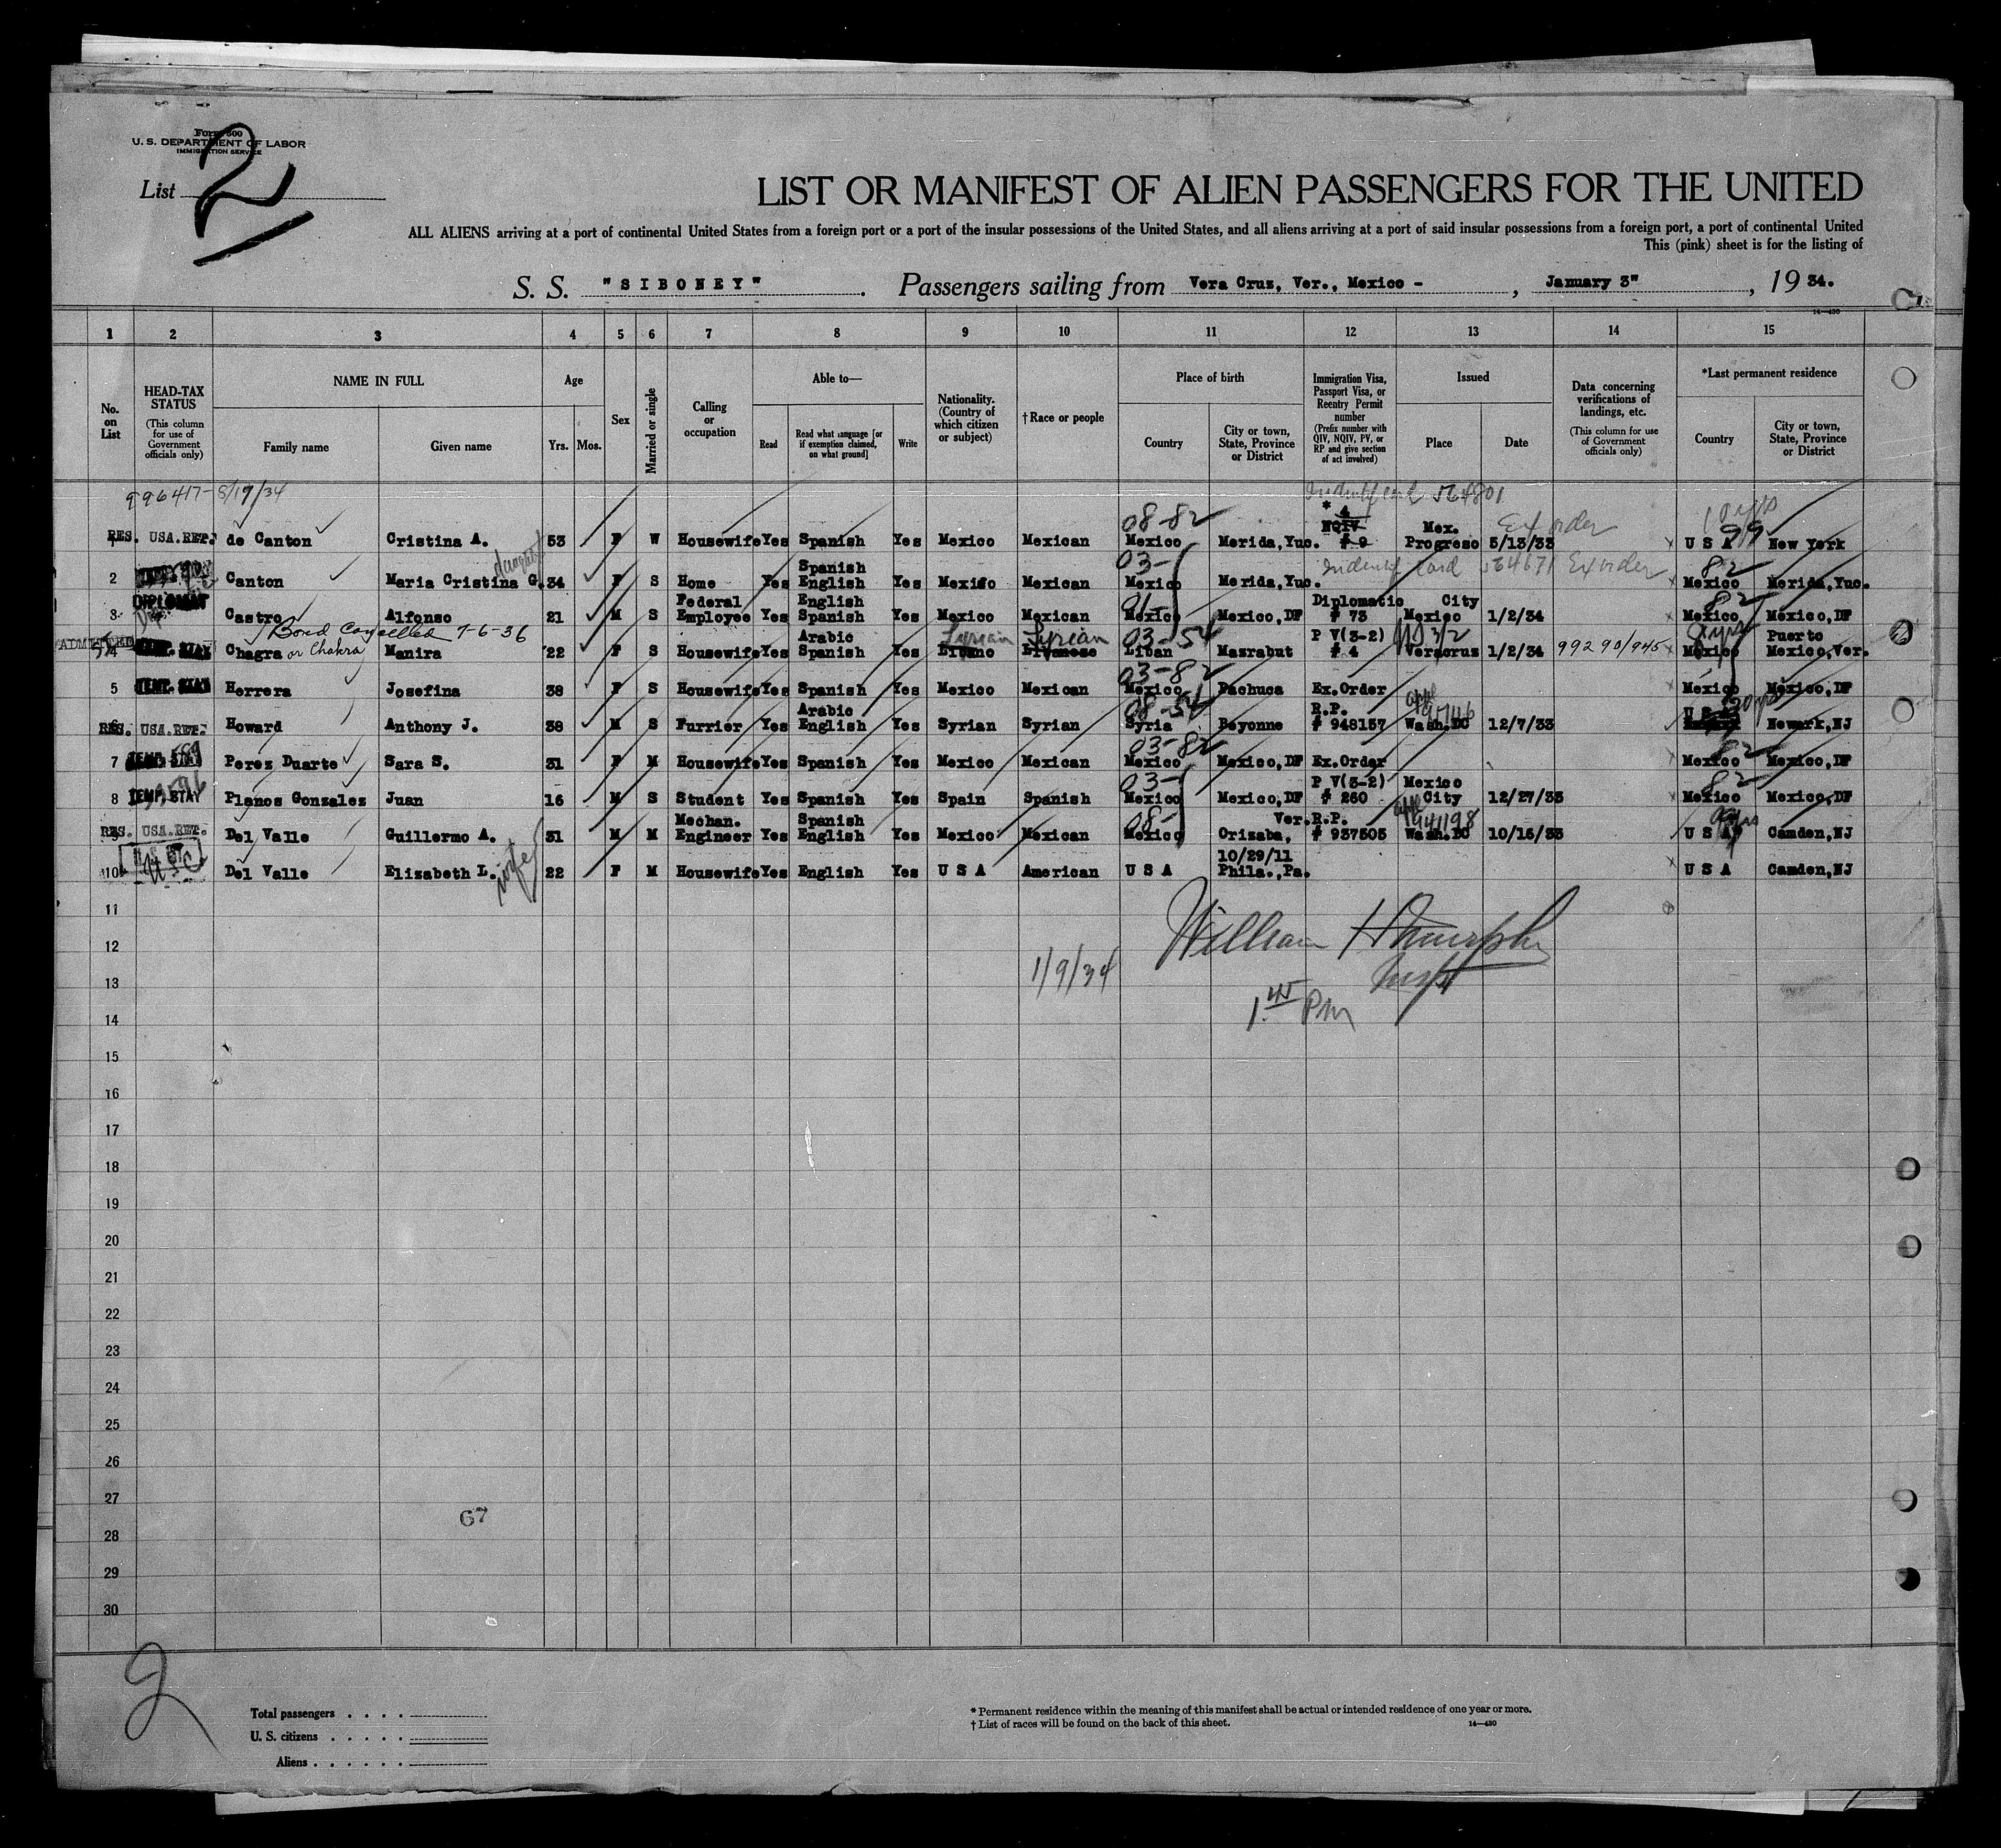 Form 500
U. S. DEPARTMENT OF LABOR
IMMIGRATION SERVICE
List 2
LIST OR MANIFEST OF ALIEN PASSENGERS FOR THE UNITED
ALL ALIENS arriving at a port of continental United States from a foreign port or a port of the insular possessions of the United States, and all aliens arriving at a port of said insular possessions from a foreign port, a port of continental United
This (pink) sheet is for the listing of
S. S. "SIBONEY". Passengers sailing from Vera Cruz, Ver., Mexico - , January 3" , 19 34.
14—430
1 2 3 4 5 6 7 8 9 10 11 12 13 14 15
No. on List
HEAD-TAX STATUS
(This column for use of Government officials only)
NAME IN FULL
Family name Given name
Age
Yrs. Mos.
Sex
Married or single
Calling or occupation
Able to—
Read
Read what language [or if exemption claimed, on what ground]
Write
Nationality. (Country of which citizen or subject)
†Race or people
Place of birth
Country
City or town, State, Province or District
Immigration Visa, Passport Visa, or Reentry Permit number
(Prefix number with QIV, NQIV, PV, or RP and give section of act involved)
Issued
Place Date
Data concerning verifications of landings, etc.
(This column for use of Government officials only)
*Last permanent residence
Country
City or town, State, Province or District
996417-8/17/34 564801
1 RES. USA.RET. de Canton Cristina A. 53 F W Housewife Yes Spanish Yes Mexico Mexican 08-82 Mexico Merida,Yuc. * 4 NQIV # 9 Mex. Progreso 5/13/33 Ex order 10 yrs U S A 99 New York
2 Canton Maria Cristina G. daughter 34 F S Home Yes Spanish English Yes Mexico Mexican 03- Mexico Merida,Yuc. 564671 Ex order 82 Mexico Merida,Yuc.
3 DIPLOMAT Castro Alfonso 21 M S Federal Employee Yes English Spanish Yes Mexico Mexican Mexico Mexico,DF Diplomatic # 73 City Mexico 1/2/34 82 Mexico Mexico,DF
Bond Cancelled 7-6-36
4 ADMITTED TEMP. STAY Chagra or Chakra Manira 22 F S Housewife Yes Arabic Spanish Yes Syrian Syrian 03-54 Liban Mazrabut P V(3-2) # 4 Veracruz 1/2/34 99290/945 Mexico Puerto Mexico,Ver.
5 TEMP. STAY Herrera Josefina 38 F S Housewife Yes Spanish Yes Mexico Mexican 03-82 Mexico Pachuca Ex.Order Mexico Mexico,DF
6 RES. USA.RET. Howard Anthony J. 38 M S Furrier Yes Arabic English Yes Syrian Syrian 08-54 Syria Beyonne R.P. # 948157 Wash.DC 12/7/33 U S A Newark,NJ
7 TEMP. STAY Perez Duarte Sara S. 31 F M Housewife Yes Spanish Yes Mexico Mexican 03-82 Mexico Mexico,DF Ex.Order 82 Mexico Mexico,DF
8 TEMP. STAY Planos Gonzalez Juan 16 M S Student Yes Spanish Yes Spain Spanish 03- Mexico Mexico,DF P V(3-2) # 260 Mexico City 12/27/33 82 Mexico Mexico,DF
9 RES. USA.RET. Del Valle Guillermo A. 31 M M Mechan. Engineer Yes Spanish English Yes Mexico Mexican 08- Mexico Orizaba, Ver. R.P. # 937505 appl 941198 Wash.DC 10/16/33 U S A Camden,NJ
10 USC Del Valle Elizabeth L. wife 22 F M Housewife Yes English Yes U S A American U S A 10/29/11 Phila.,Pa. U S A Camden,NJ
11
12
13
14
15
16
17
18
19
20
21
22
23
24
25
26
27
28
29
30
William H Murphy
Insp
1/9/34
1.45 PM
67
2
Total passengers . . . .
U. S. citizens . . . . .
Aliens . . . . . .
* Permanent residence within the meaning of this manifest shall be actual or intended residence of one year or more.
† List of races will be found on the back of this sheet.
14—430